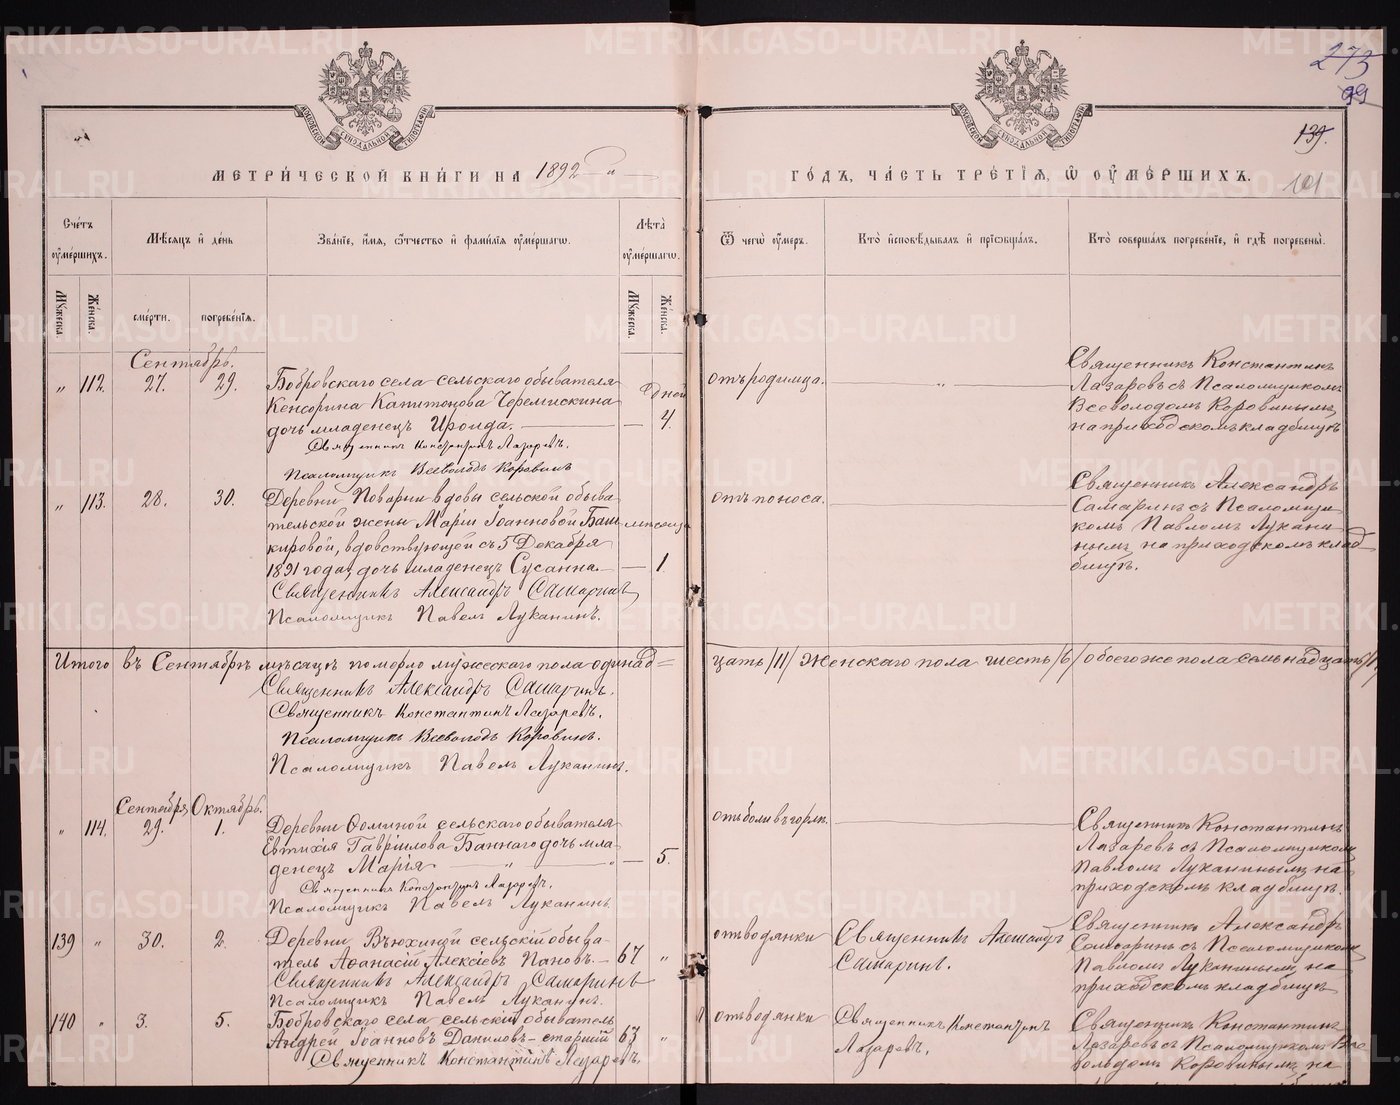 273
99
139.
101
МЕТРИ́ЧЕСКОЙ КНИ́ГИ НА 1892-й
ГО́ДЪ, ЧА́СТЬ ТРЕ́ТІѦ, Ѿ ОУ҆МЕ́РШИХЪ.
Сче́тъ оу҆ме́ршихъ.
Мѣ́сяцъ и҆ де́нь
Зва́ніе, и҆́мѧ, ѻ҆́тчество и҆ фами́лїѧ оу҆ме́ршагѡ.
Лѣ́та оу҆ме́ршагѡ.
Ѿ чегѡ̀ оу҆́меръ.
Кто̀ и҆сповѣ́дывалъ и҆ прїѡбща́лъ.
Кто̀ соверша́лъ погребе́нїе, и҆ гдѣ̀ погребены̀.
Мꙋ́жеска.
Же́нска.
сме́рти.
погребе́нїѧ.
Мꙋ́жеска.
Же́нска.
Сентябрь.
" 112. 27. 29. Бобровскаго села сельскаго обывателя
Кенсорина Капитонова Черемискина
дочь младенецъ Ироида.
дней
4.
Священникъ Константинъ Лазаревъ.
Псаломщикъ Всеволодъ Коровинъ
отъ родимца.
"
Священникъ Константинъ
Лазаревъ съ Псаломщикомъ
Всеволодомъ Коровинымъ,
на приходскомъ кладбищѣ
" 113. 28. 30. Деревни Поварни вдовы сельской обыва
тельской жены Маріи Іоанновой Баш
кировой, вдовствующей съ 5 Декабря
1891 года, дочь младенецъ Сусанна.
мѣсяца
1.
Священникъ Александръ Самаринъ
Псаломщикъ Павелъ Луканинъ.
отъ поноса.
Священникъ Александръ
Самаринъ съ Псаломщи
комъ Павломъ Лукани
нымъ, на приходскомъ клад
бищѣ.
Итого въ Сентябрѣ мѣсяцѣ померло мужескаго пола одинад=
цать /11/ Женскаго пола шесть /6/ обоего же пола семьнадцать
Священникъ Александръ Самаринъ.
Священникъ Константинъ Лазаревъ.
Псаломщикъ Всеволодъ Коровинъ.
Псаломщикъ Павелъ Луканинъ.
Сентября Октябрь.
" 114. 29. 1. Деревни Ѳоминой сельскаго обывателя
Евтихія Гавріилова Баннаго дочь мла
денецъ Марія " " 5.
Священникъ Константинъ Лазаревъ.
Псаломщикъ Павелъ Луканинъ
отъ боли въ горлѣ.
Священникъ Константинъ
Лазаревъ съ Псаломщикомъ
Павломъ Луканинымъ, на
приходскомъ кладбищѣ.
139 " 30. 2. Деревни Вьюхиной сельскій обыва-
тель Аѳанасій Алексіевъ Пановъ. 67 "
Священникъ Александръ Самаринъ
Псаломщикъ Павелъ Луканинъ.
отъ водянки
Священникъ Александръ
Самаринъ.
Священникъ Александръ
Самаринъ съ Псаломщикомъ
Павломъ Луканинымъ, на
приходскомъ кладбищѣ
140 " 3. 5. Бобровскаго села сельскій обыватель
Андрей Іоанновъ Даниловъ - старшій 63 "
Священникъ Константинъ Лазаревъ.
отъ водянки
Священникъ Константинъ
Лазаревъ.
Священникъ Константинъ
Лазаревъ съ Псаломщикомъ Все
володомъ Коровинымъ, на
METRIKI.GASO-URAL.RU